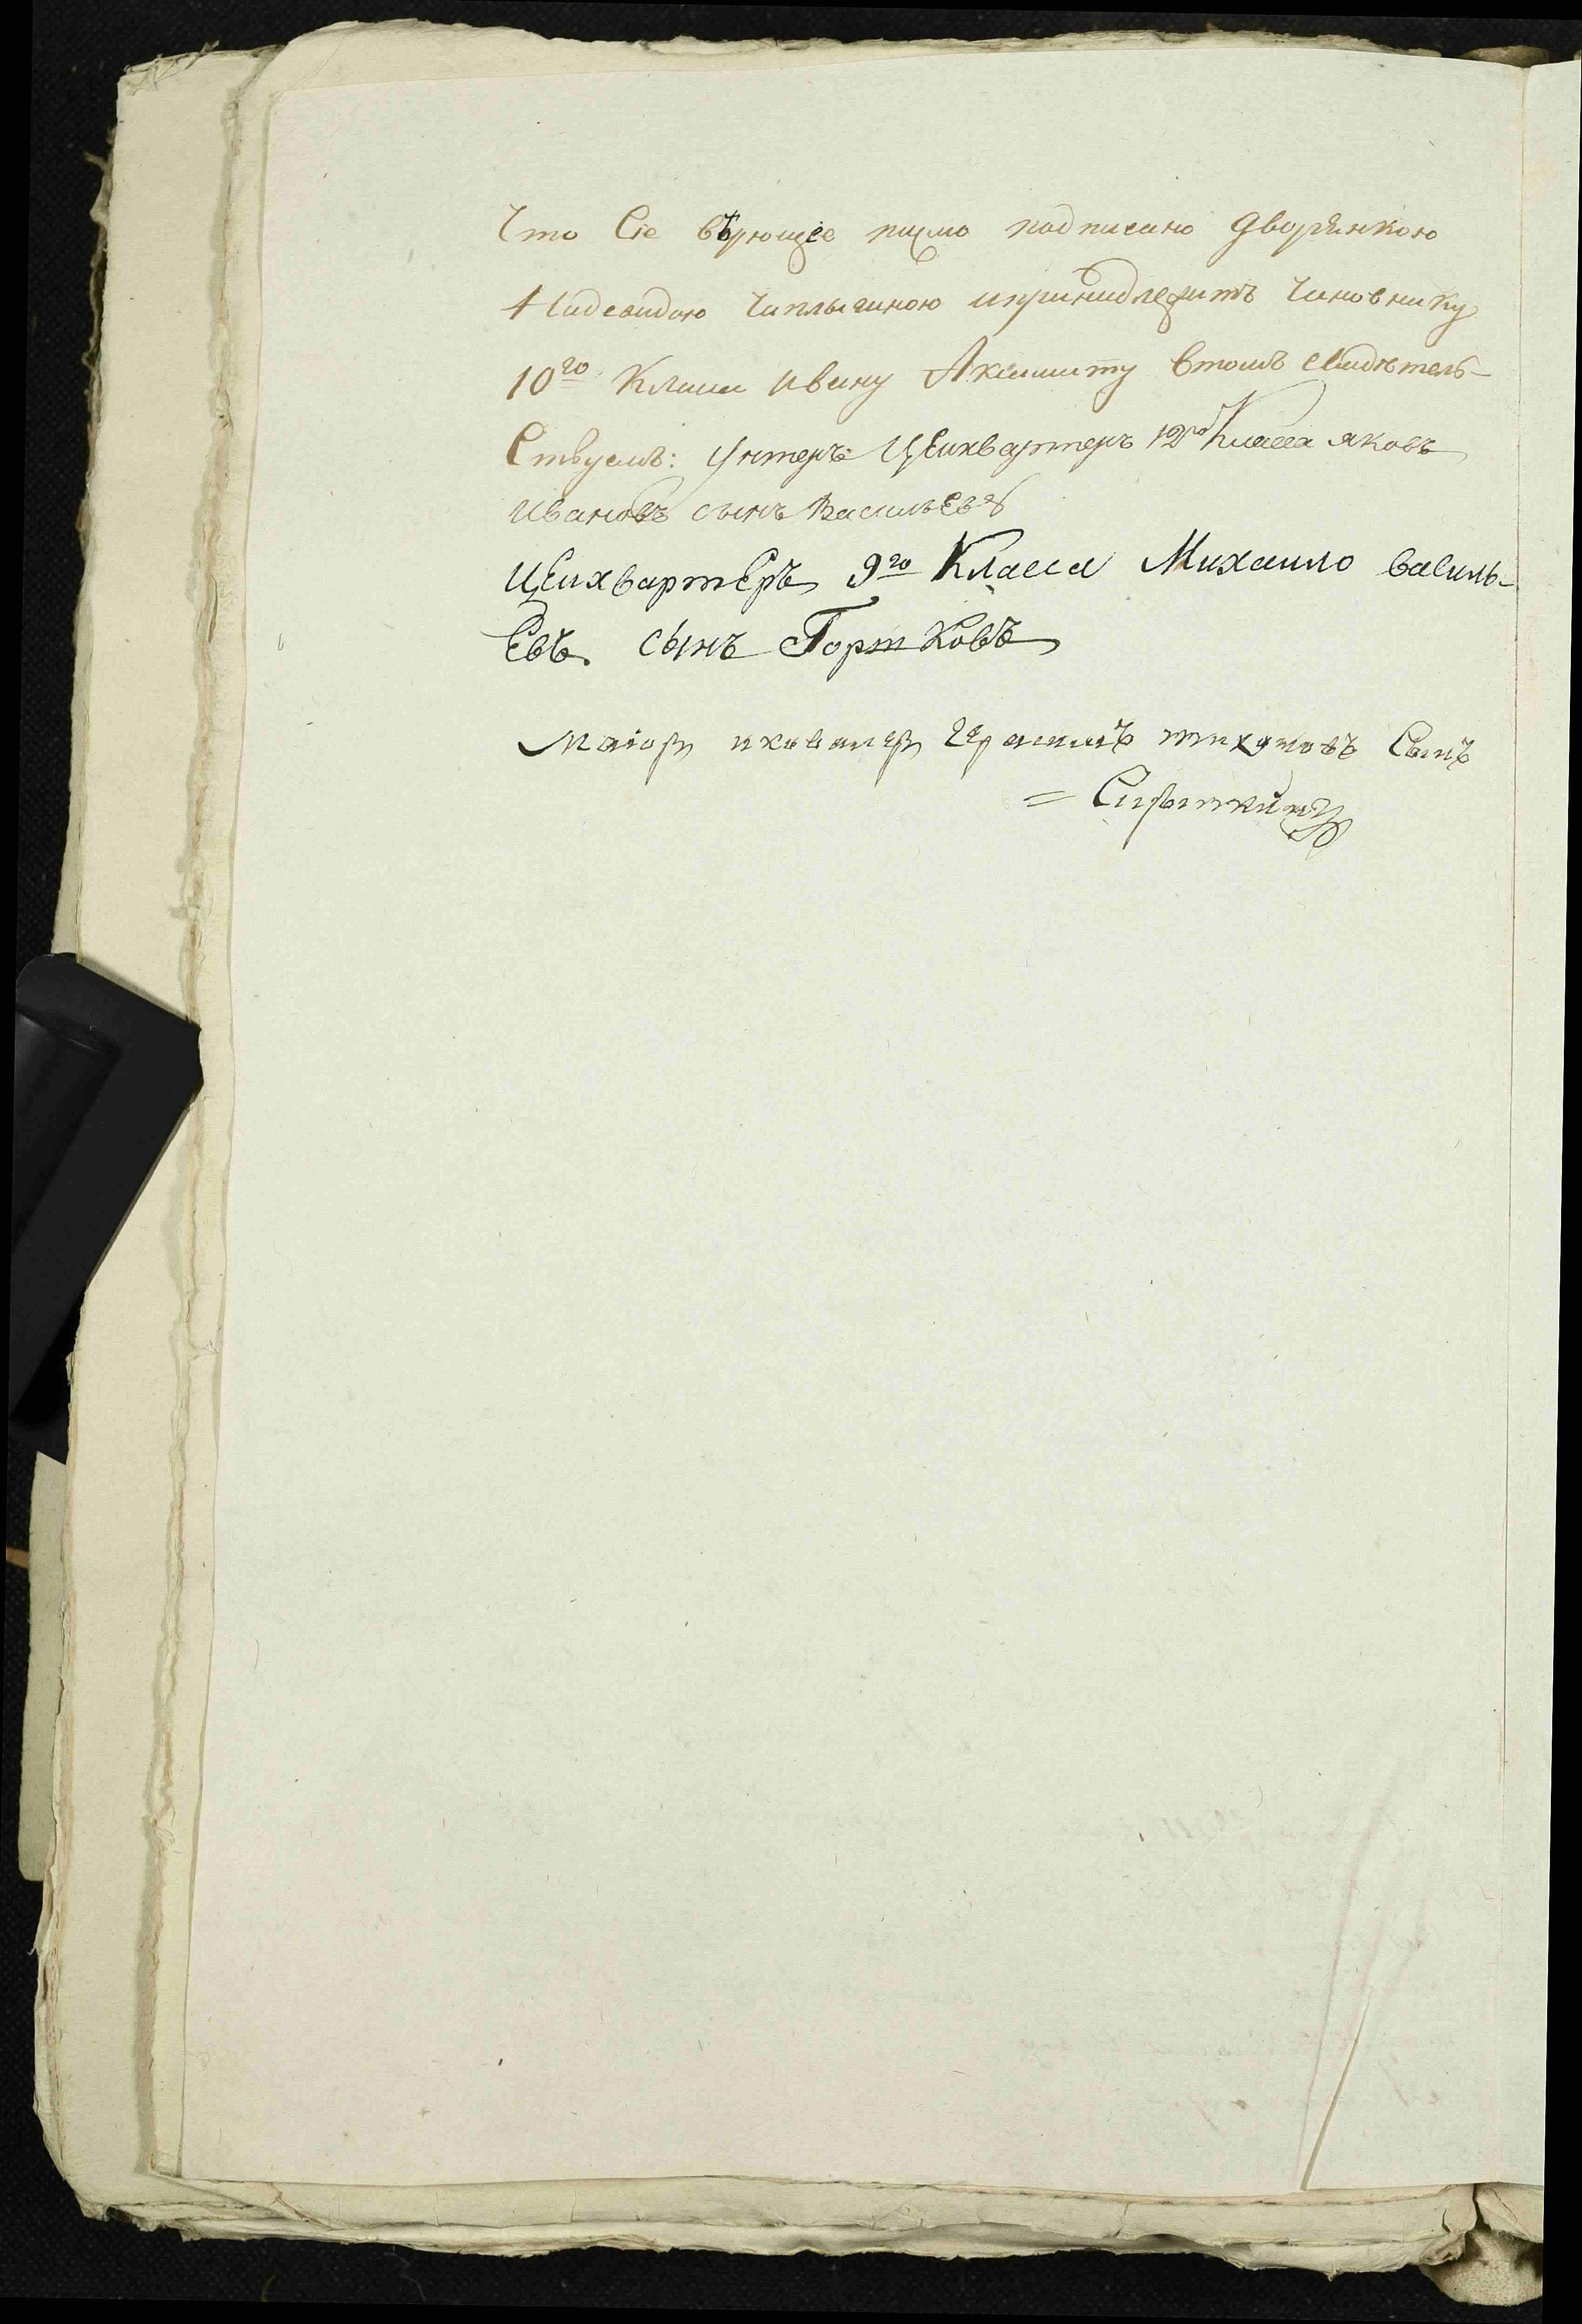 Что Сіе вѣрющее писмо подписано дворянкою
Надеждою Чаплыгиною ипринадлежитъ Чиновнику
10го Класа ивану втомъ свидѣтель-
Ствуемъ: Унтеръ Цеихвартеръ 12го Класса яковъ
ивановъ сынъ Васильевъ
Цеихвартеръ 9го Класса Михаило василь-
Евъ сынъ Портковъ
маіоръ икавалеръ Герасимъ тихановъ Сынъ
= Сироткинъ